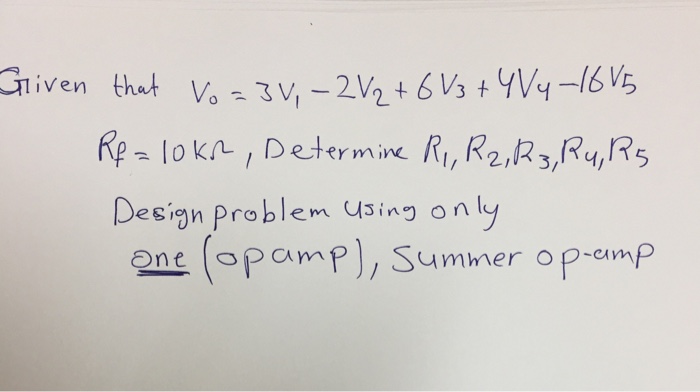 Given that Vo = 3V1 - 2V2 + 6V3 + 4V4 - 16V5
Rf = 10kΩ, Determine R1, R2, R3, R4, R5
Design problem using only
one (opamp), Summer op-amp